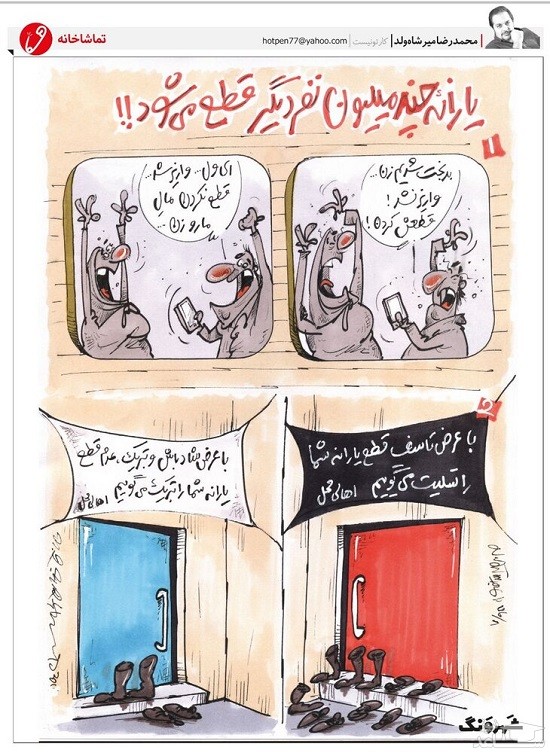 محمدرضا میرشاه‌ولد | کارتونیست | hotpen77@yahoo.com
تماشاخانه
یارانه چند میلیون نفر دیگر قطع می‌شود!!
۱
بدبخت شدیم زن...
واریز نشد!
قطعش کردن!
ای ول... واریز شد...
قطع نکردن مال
مارو زن...
۲
با عرض تاسف قطع یارانه شما
را تسلیت می‌گوییم اهالی محل
با عرض شادباش و تبریک، عدم قطع
یارانه شما را تبریک می‌گوییم اهالی محل
شهرونگ